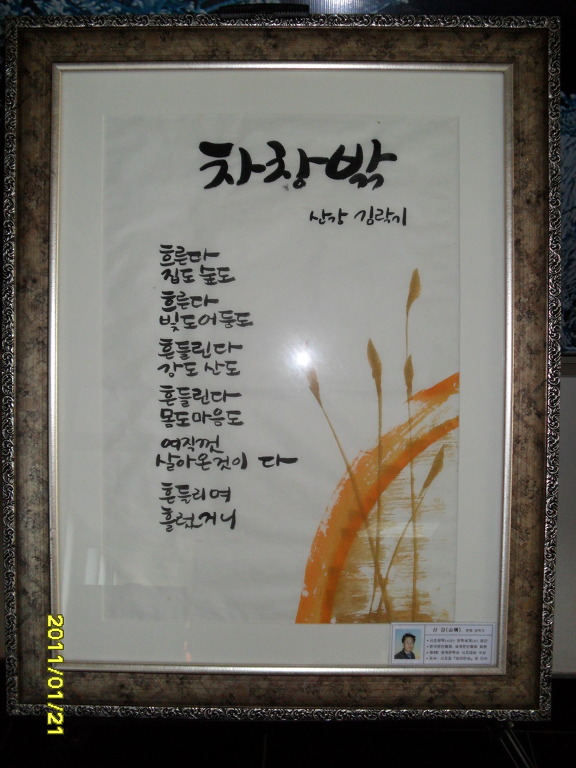 차창밖
산강 김락기
흐른다
집도 숲도
흐른다
빛도 어둠도
흔들린다
강도 산도
흔들린다
몸도 마음도
여직껏
살아온 것이 다
흔들리며
흘렀거니
산 강(山堈)
2011/01/21